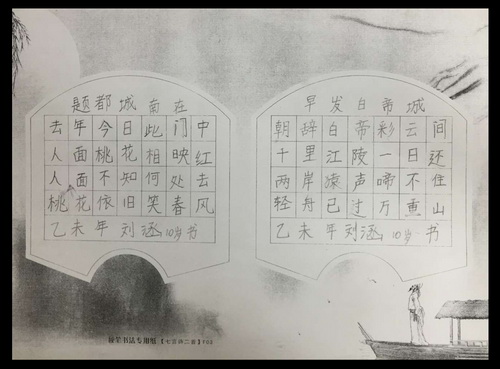 题都城南在
去年今日此门中
人面桃花相映红
人面不知何处去
桃花依旧笑春风
乙未年刘涵10岁书
早发白帝城
朝辞白帝彩云间
十里江陵一日还
两岸猿声啼不住
轻舟已过万重山
乙未年刘涵10岁书
书法专用纸【七言诗二首】